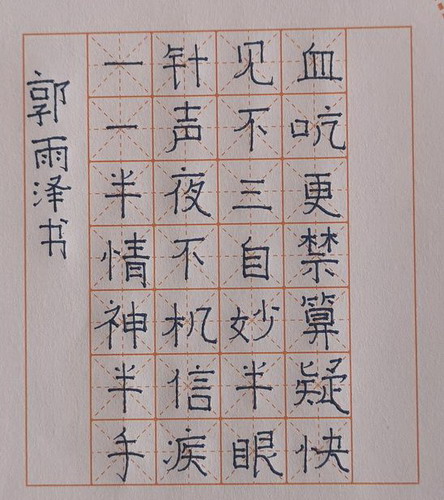 一针见血
一声不吭
半夜三更
情不自禁
神机妙算
半信半疑
手疾眼快
郭雨泽书